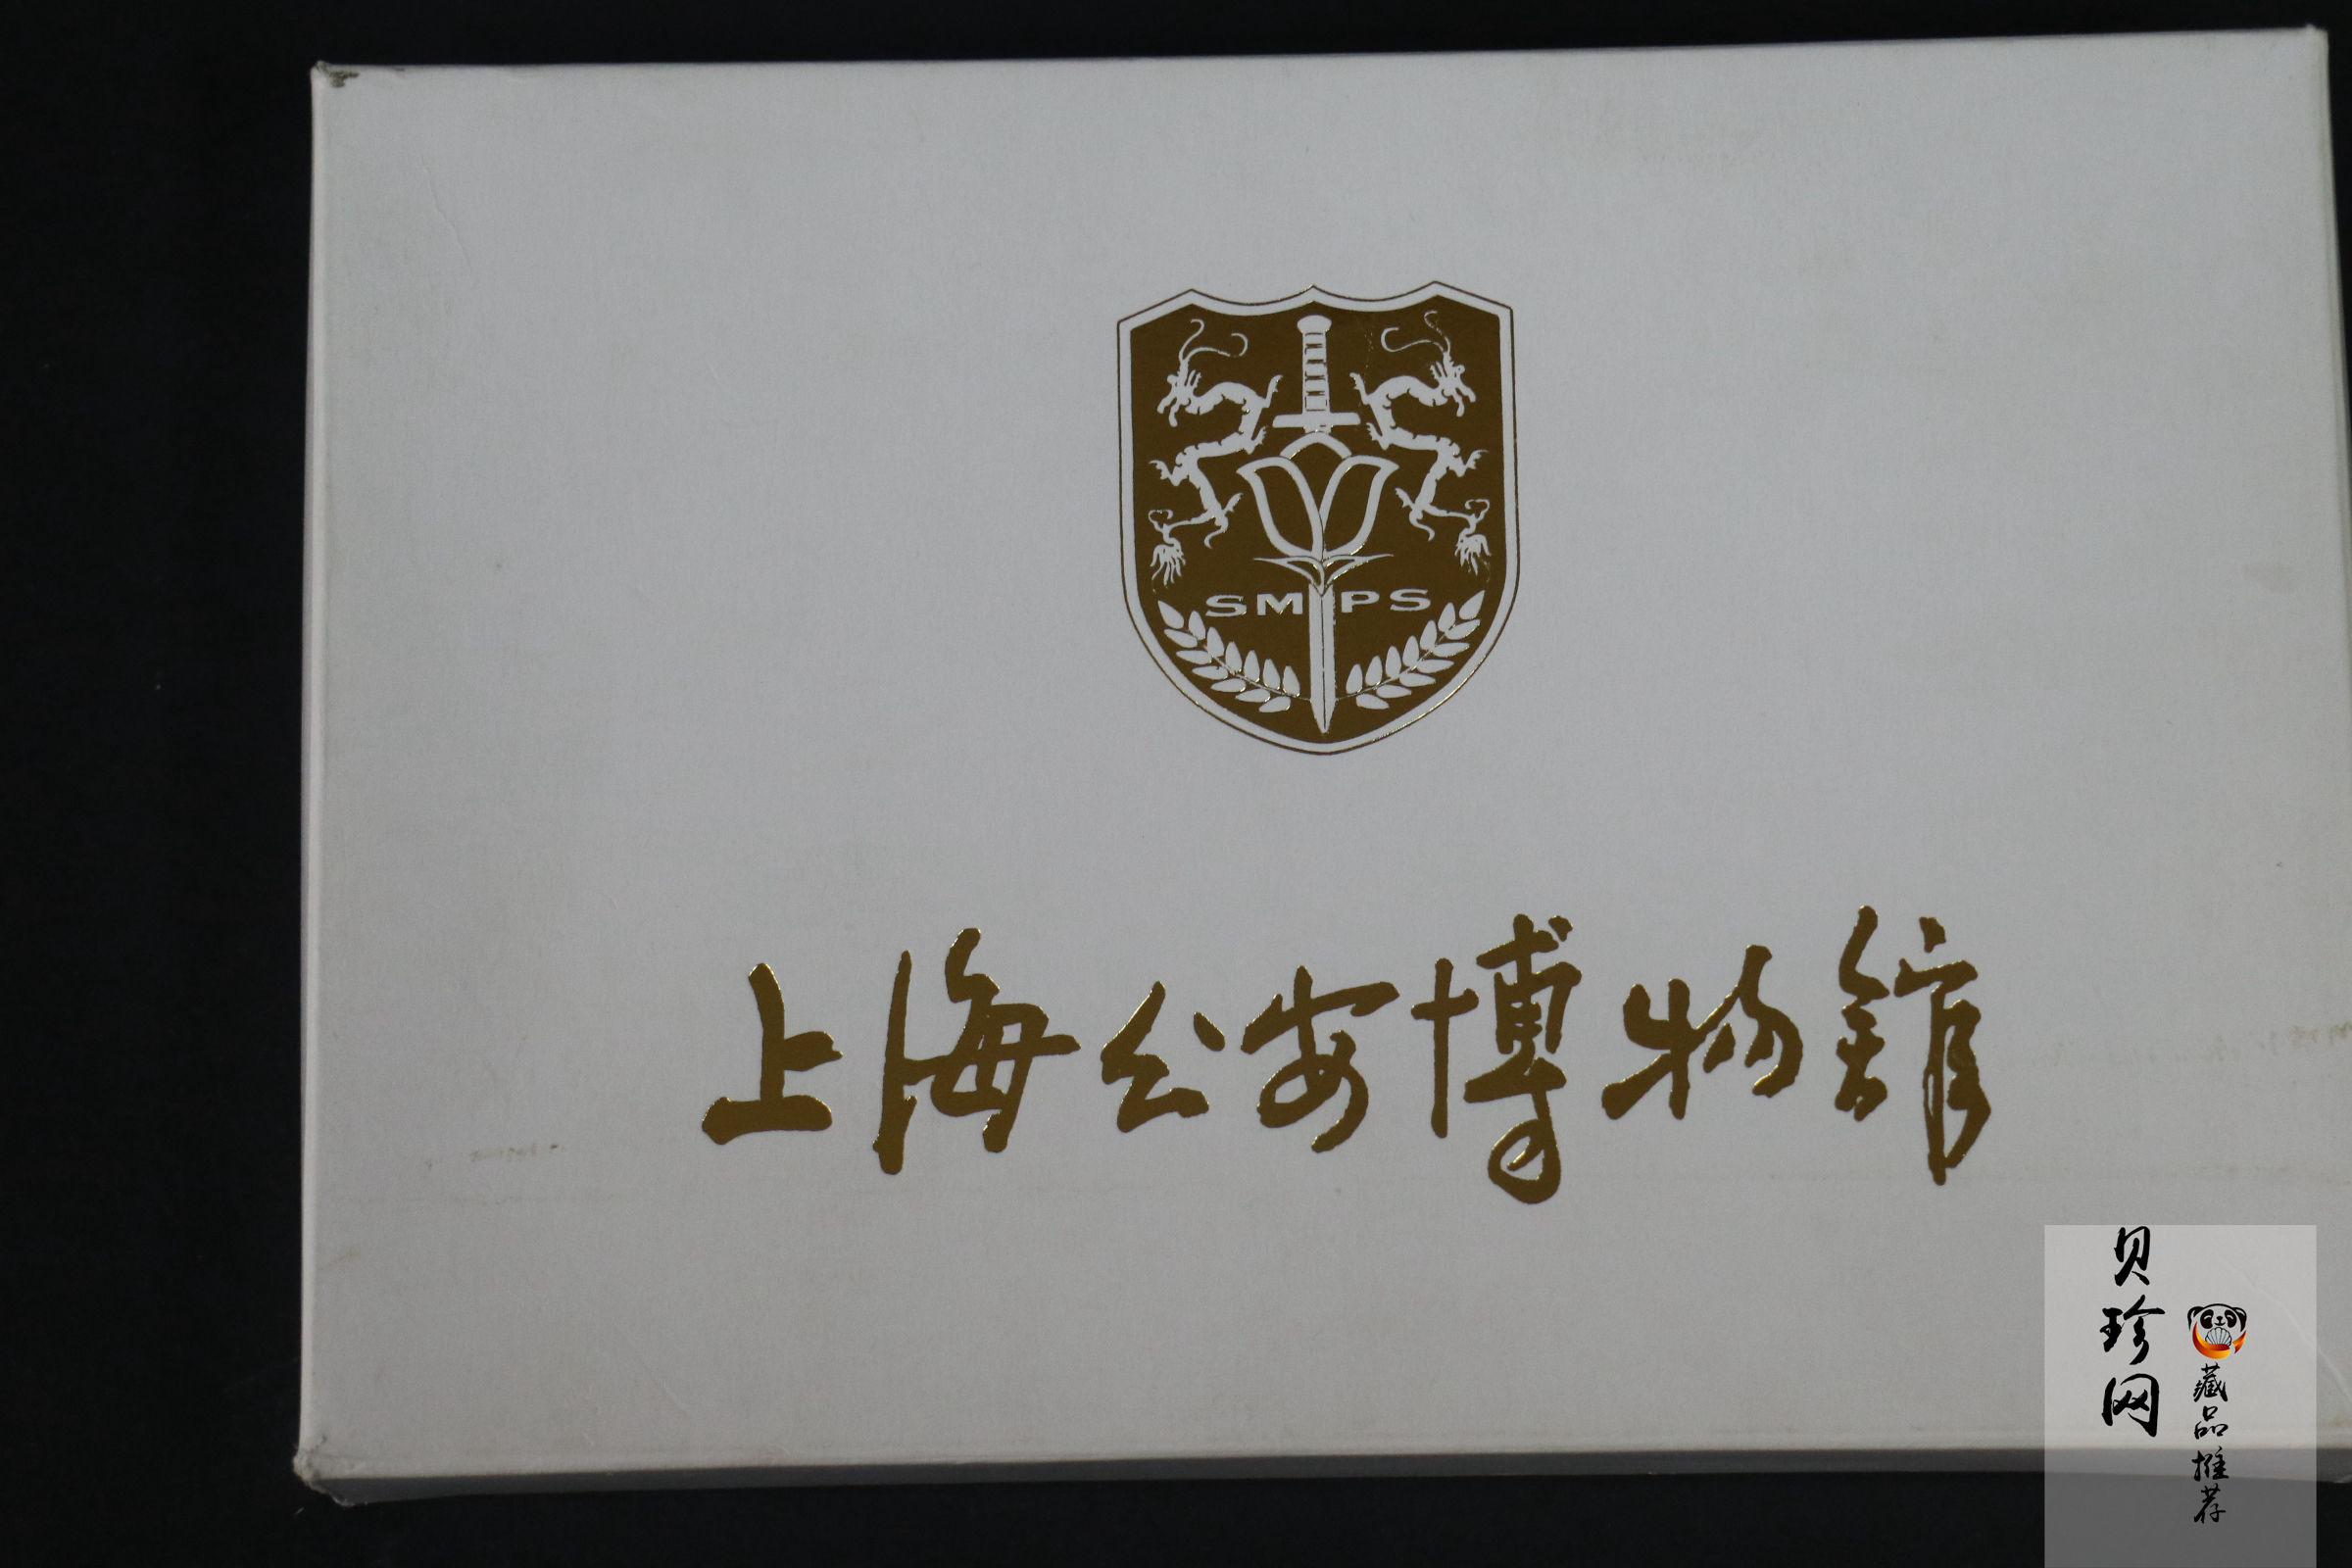 SMPS
上海公安博物館
贝珍网
藏品推荐